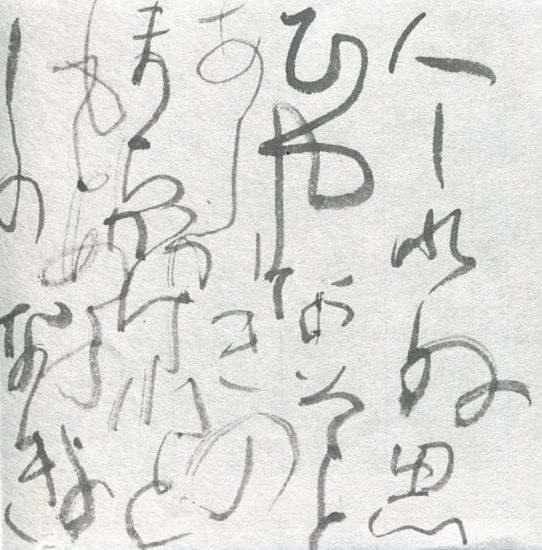 人しれぬ思
ひやなそと
あしかきの
まちかけれと
もあふよ
しのなき